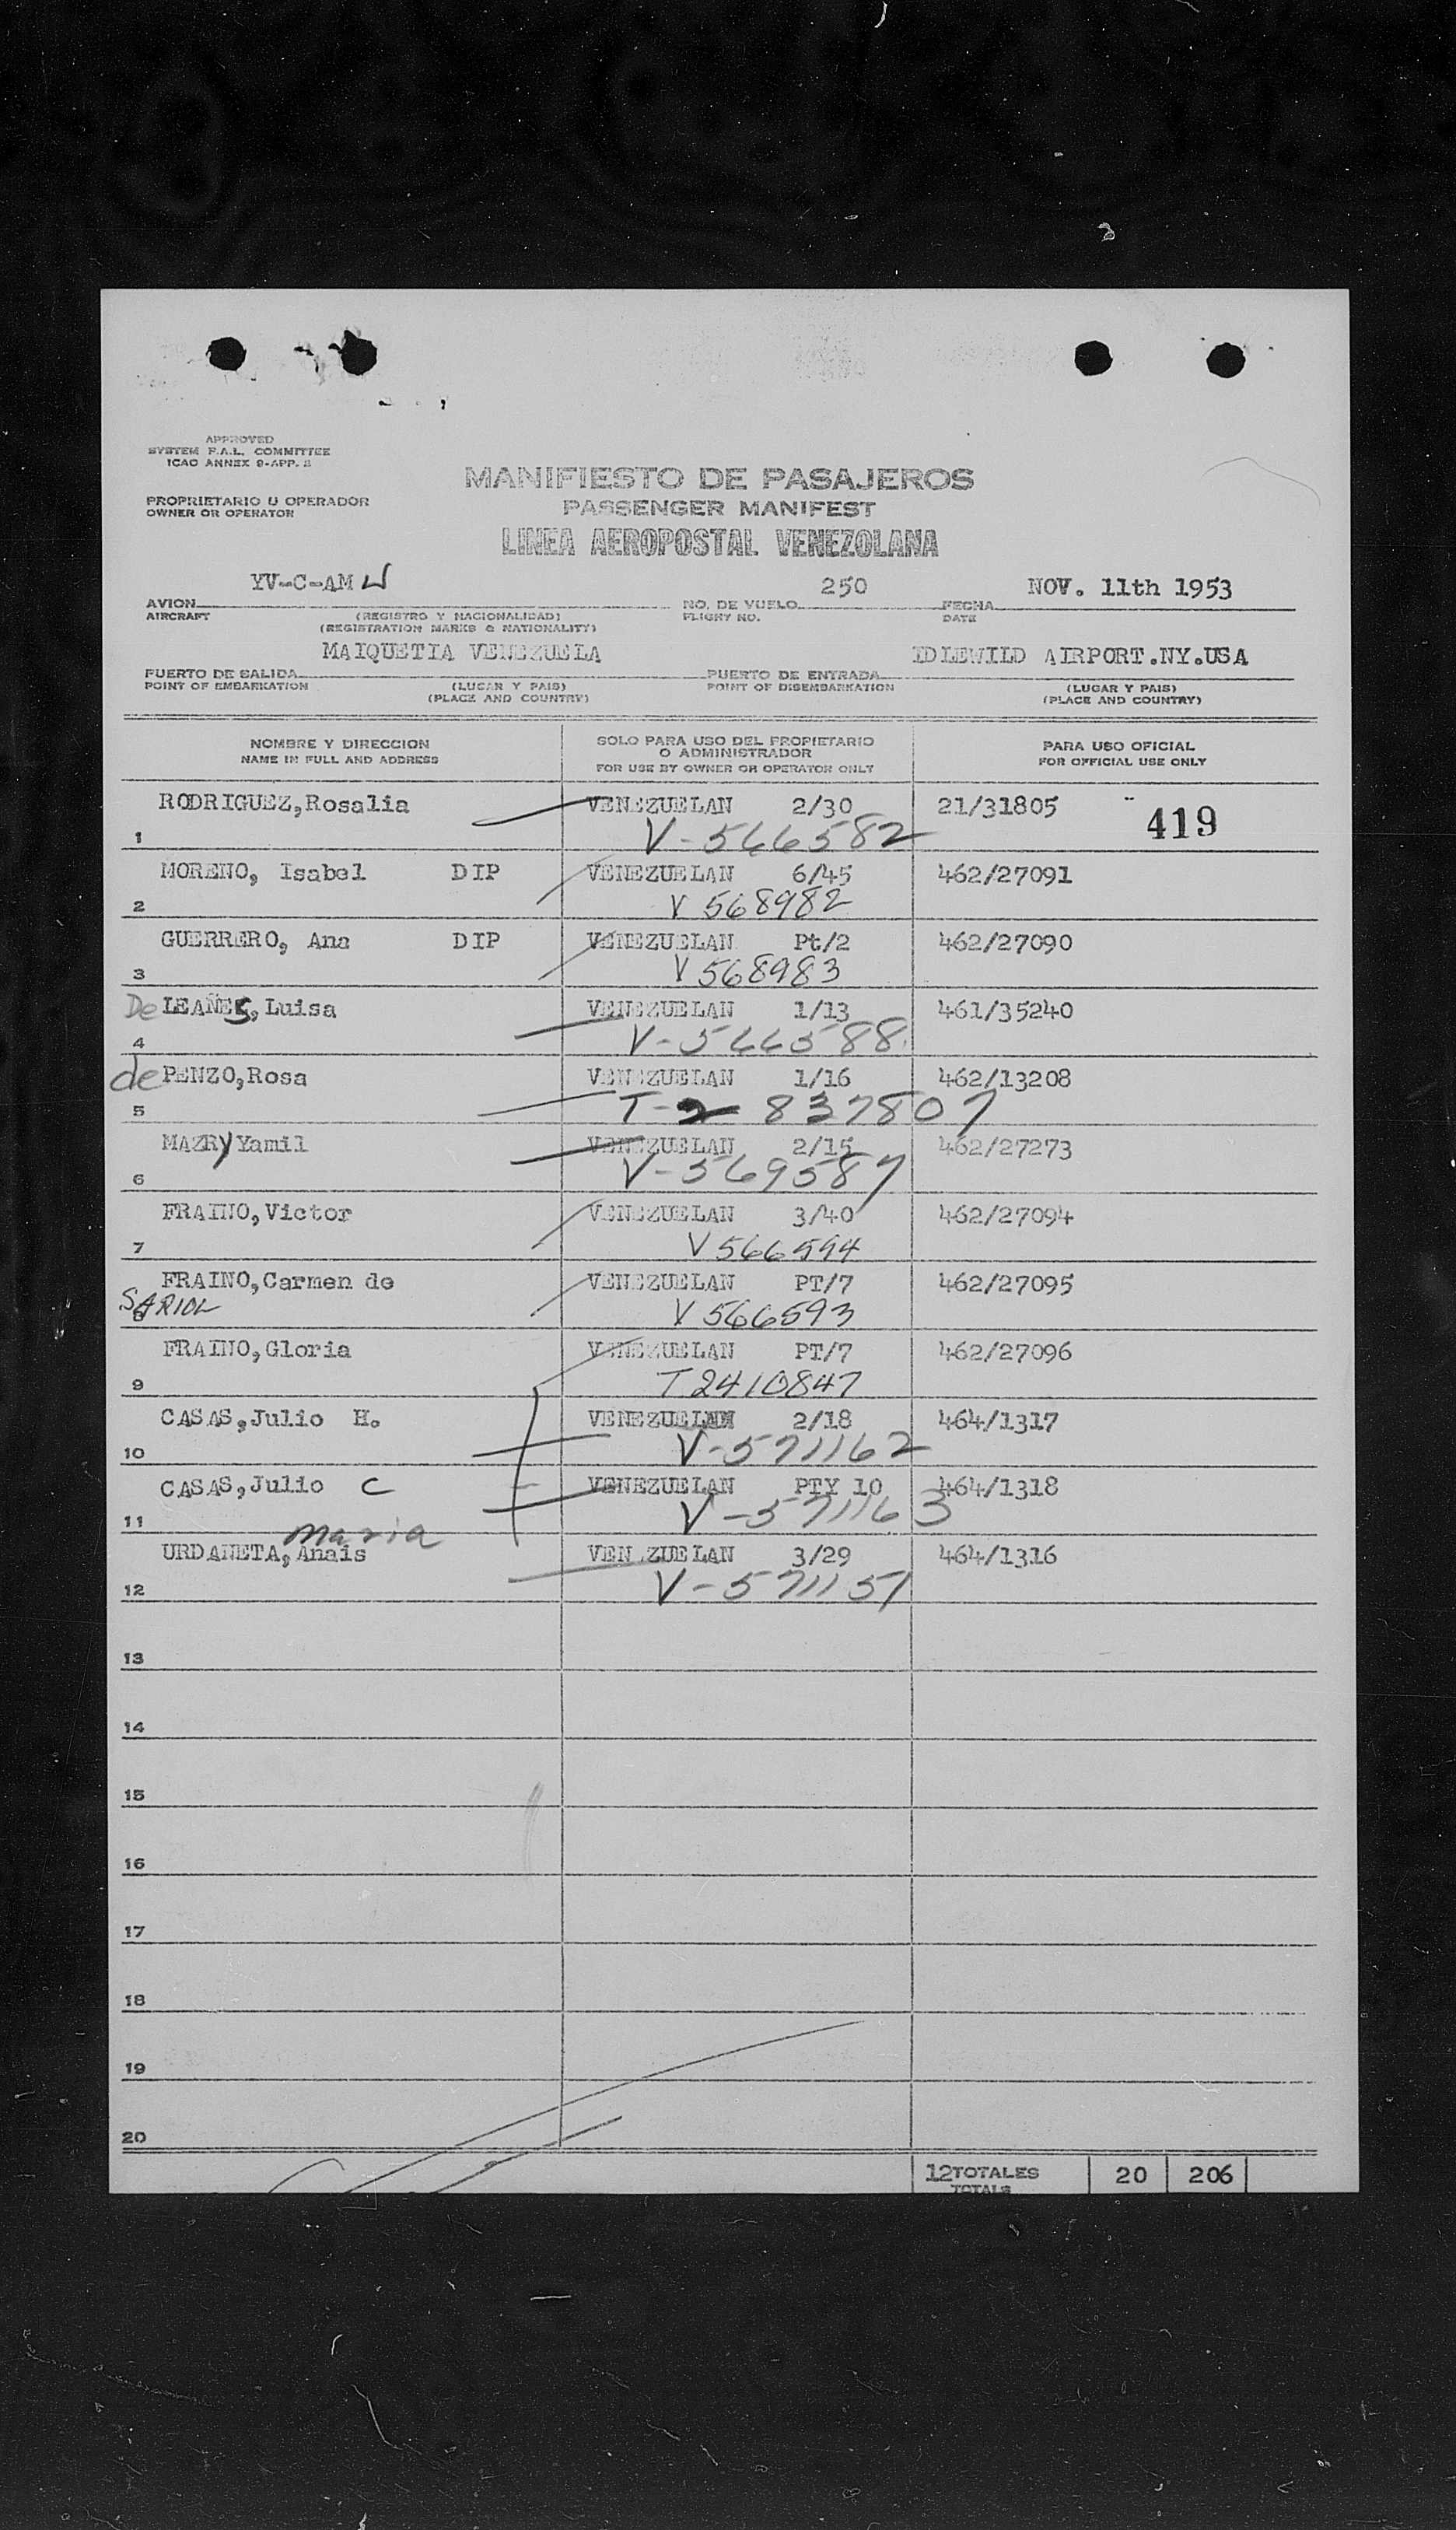 APPROVED
SYSTEM F.A.L. COMMITTEE
ICAO ANNEX 9-APP. 2
MANIFIESTO DE PASAJEROS
PROPRIETARIO U OPERADOR
OWNER OR OPERATOR
PASSENGER MANIFEST
LINEA AEROPOSTAL VENEZOLANA
YV-C-AM W 250 NOV. 11th 1953
AVION NO. DE VUELO FECHA
AIRCRAFT (REGISTRO Y NACIONALIDAD) FLIGHT NO. DATE
(REGISTRATION MARKS & NATIONALITY)
MAIQUETIA VENEZUELA IDLEWILD AIRPORT.NY.USA
PUERTO DE SALIDA PUERTO DE ENTRADA
POINT OF EMBARKATION (LUGAR Y PAIS) POINT OF DISEMBARKATION (LUGAR Y PAIS)
(PLACE AND COUNTRY) (PLACE AND COUNTRY)
NOMBRE Y DIRECCION SOLO PARA USO DEL PROPIETARIO PARA USO OFICIAL
O ADMINISTRADOR
NAME IN FULL AND ADDRESS FOR USE BY OWNER OR OPERATOR ONLY FOR OFFICIAL USE ONLY
RODRIGUEZ,Rosalia VENEZUELAN 2/30 21/31805 419
1 V-566582
MORENO, Isabel DIP VENEZUELAN 6/45 462/27091
2 V 568982
GUERRERO, Ana DIP VENEZUELAN Pt/2 462/27090
3 V 568983
De LEAÑES,Luisa VENEZUELAN 1/13 461/35240
4 V-566588
de PENZO,Rosa VENEZUELAN 1/16 462/13208
5 T-2 837807
MAZRY Yamil VENEZUELAN 2/15 462/27273
6 V-569587
FRAINO,Victor VENEZUELAN 3/40 462/27094
7 V 566594
FRAINO,Carmen de VENEZUELAN PT/7 462/27095
SARIOL V 566593
FRAINO,Gloria VENEZUELAN PT/7 462/27096
9 T 2410847
CASAS,Julio H. VENEZUELAN 2/18 464/1317
10 V-571162
CASAS,Julio C VENEZUELAN PTY 10 464/1318
11 V-571163
maria
URDANETA,Anais VENEZUELAN 3/29 464/1316
12 V-571151
13
14
15
16
17
18
19
20
12 TOTALES 20 206
TOTALS